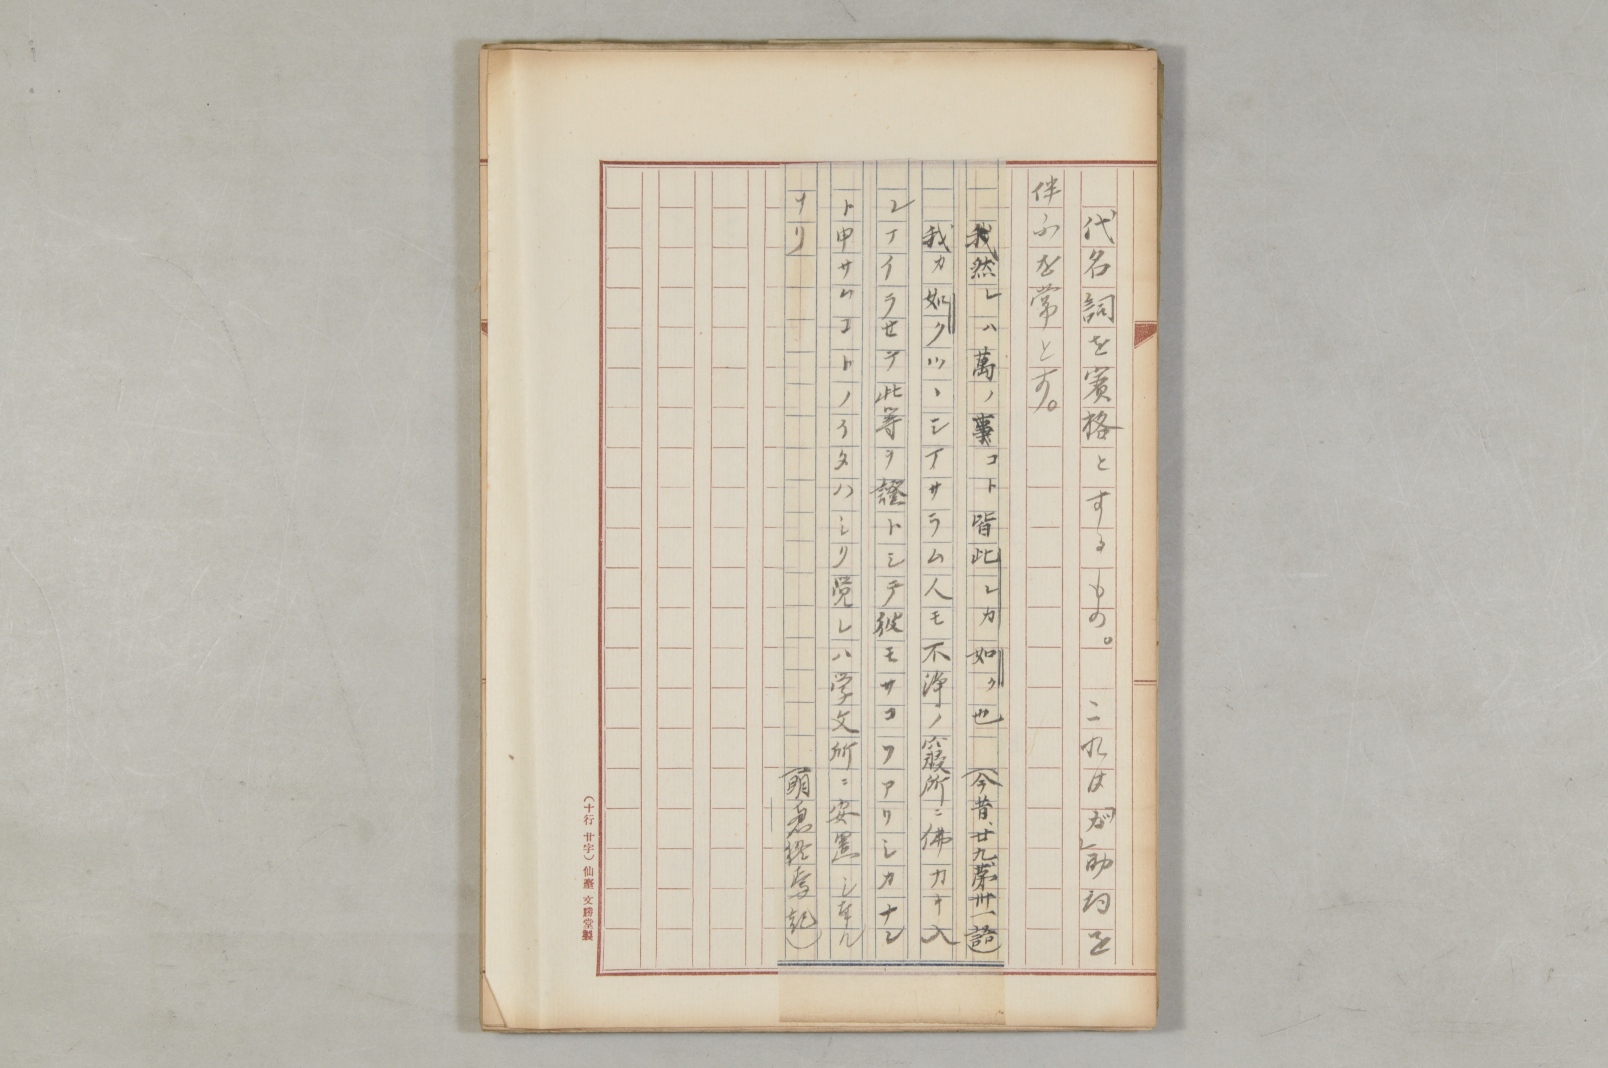 代名詞を賓格とするもの。 これは「が」助詞を
伴ふを常とす。
然レハ萬ノ事コト皆此レカ如ク也 (今昔、廿九、第卅一語)
我カ如クツヽシイサラム人モ不浄ノ寝所ニ佛カキ入
レイイラセテ此等ヲ證トシテ彼モサコソアリシカナン
ト申サムコトノイタハシリ覚レハ学文所ニ安置シ奉ル
ナリ (明恵)
(十行廿字)仙臺 文勝堂製